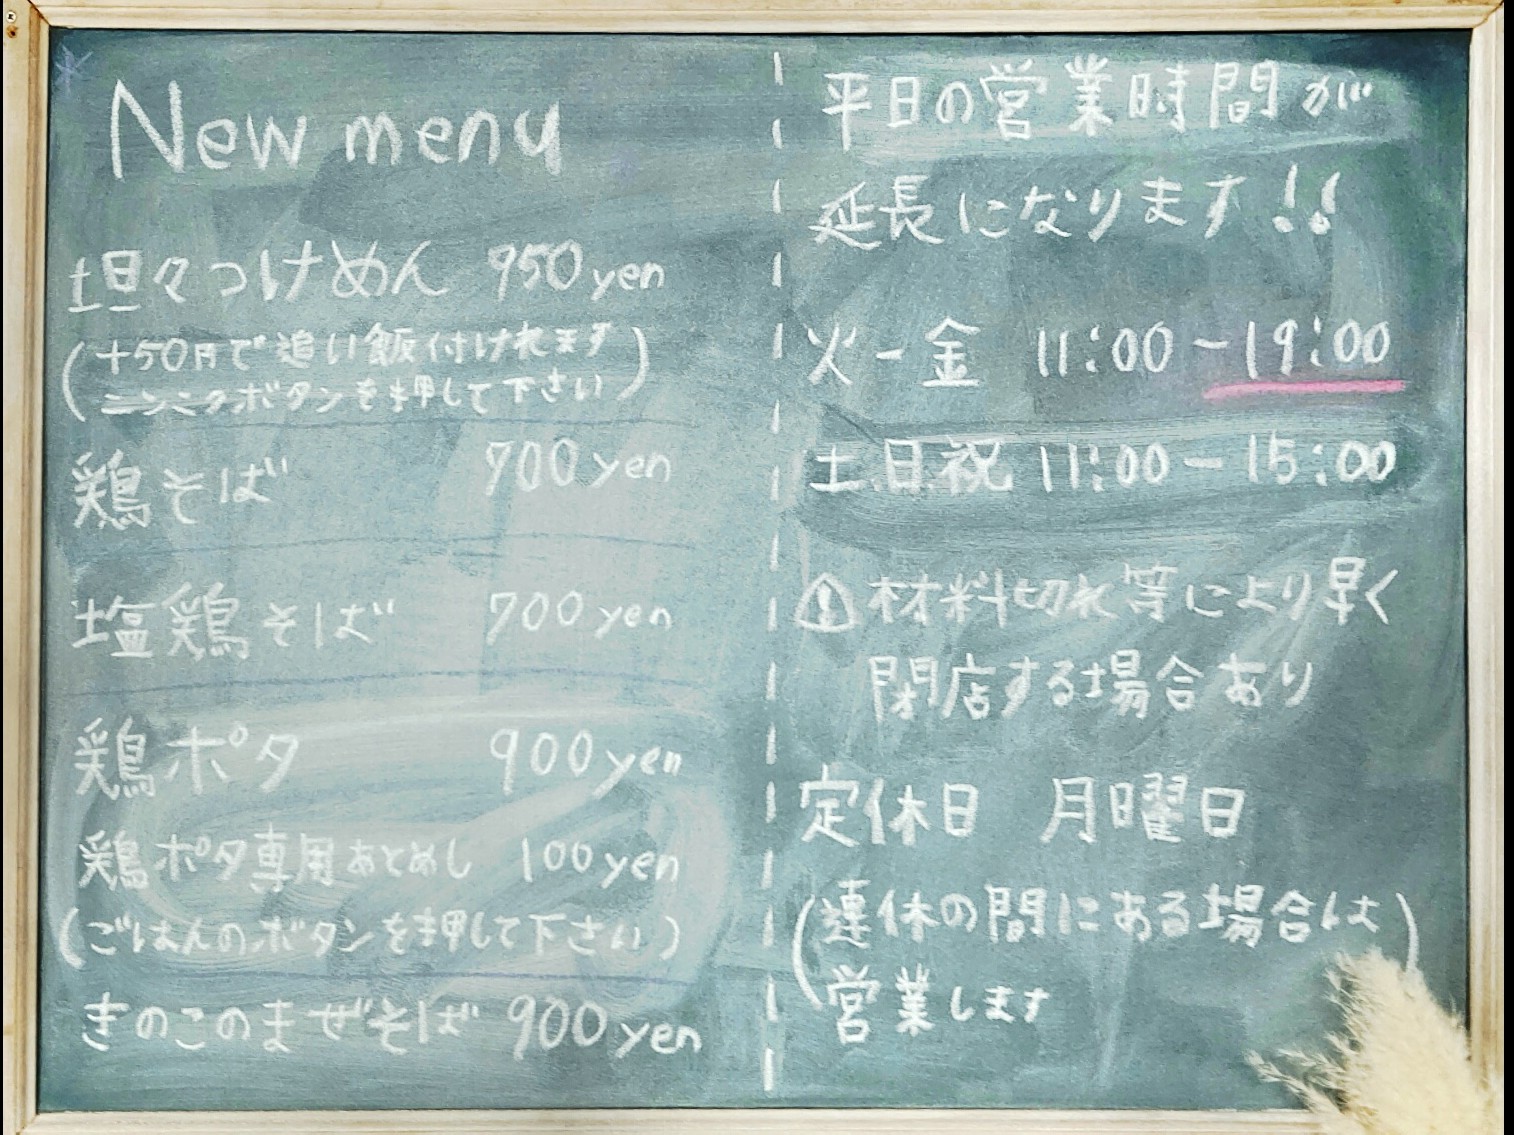 New menu
坦々つけめん 950yen
(+50円で追い飯付けれます
ニンニクボタンを押して下さい)
鶏そば 700yen
塩鶏そば 700yen
鶏ポタ 900yen
鶏ポタ専用あとめし 100yen
(ごはんのボタンを押して下さい)
きのこのまぜそば 900yen
平日の営業時間が
延長になります!!
火-金 11:00-19:00
土日祝 11:00-15:00
⚠材料切れ等により早く
閉店する場合あり
定休日 月曜日
(連休の間にある場合は
営業します)